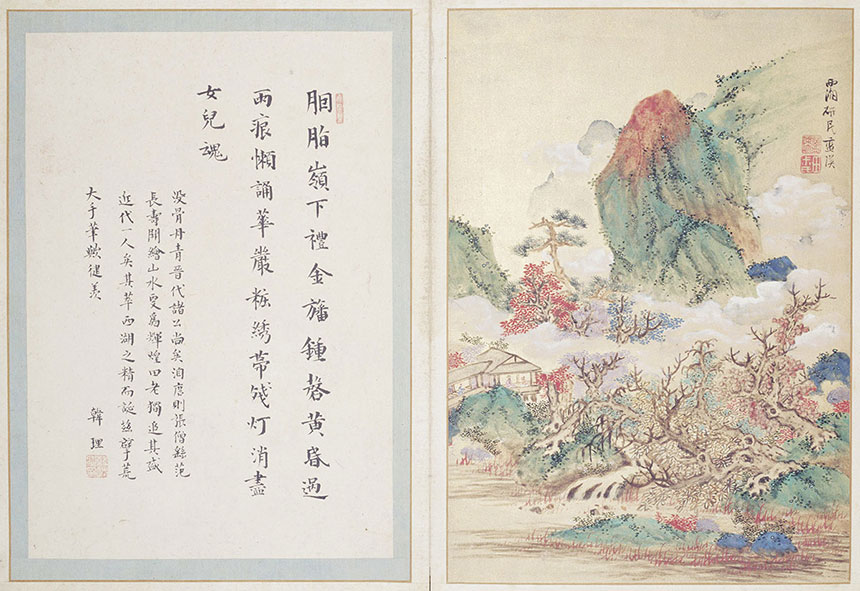 胭脂嶺下禮金旛鍾磬黃昏過
雨痕懶誦華嚴粧綉帶殘灯消盡
女兒魂
没骨丹青晉代諸公尚矣洎唐則張僧繇范
長壽開繪山水更爲輝煌田老獨追其盛
近代一人矣其萃西湖之精而誕茲
大手筆歟健羨
韓理
西湖研民藍瑛